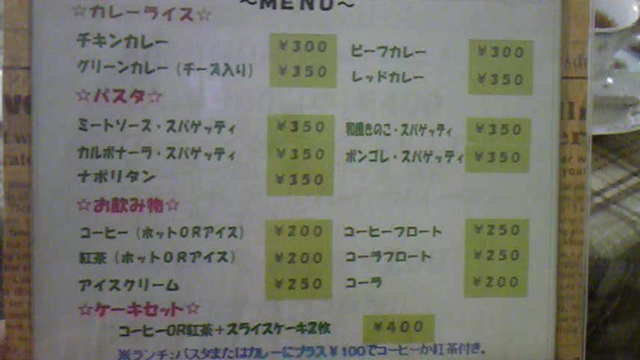 ～MENU～
☆カレーライス☆
チキンカレー ￥300 ビーフカレー ￥300
グリーンカレー（チーズ入り） ￥350 レッドカレー ￥350
☆パスタ☆
ミートソース・スパゲッティ ￥350 和風きのこ・スパゲッティ ￥350
カルボナーラ・スパゲッティ ￥350 ボンゴレ・スパゲッティ ￥350
ナポリタン ￥350
☆お飲み物☆
コーヒー（ホットORアイス） ￥200 コーヒーフロート ￥250
紅茶（ホットORアイス） ￥200 コーラフロート ￥250
アイスクリーム ￥250 コーラ ￥200
☆ケーキセット☆
コーヒーOR紅茶＋スライスケーキ2枚 ￥400
※ランチ：パスタまたはカレーにプラス￥100でコーヒーか紅茶付き。